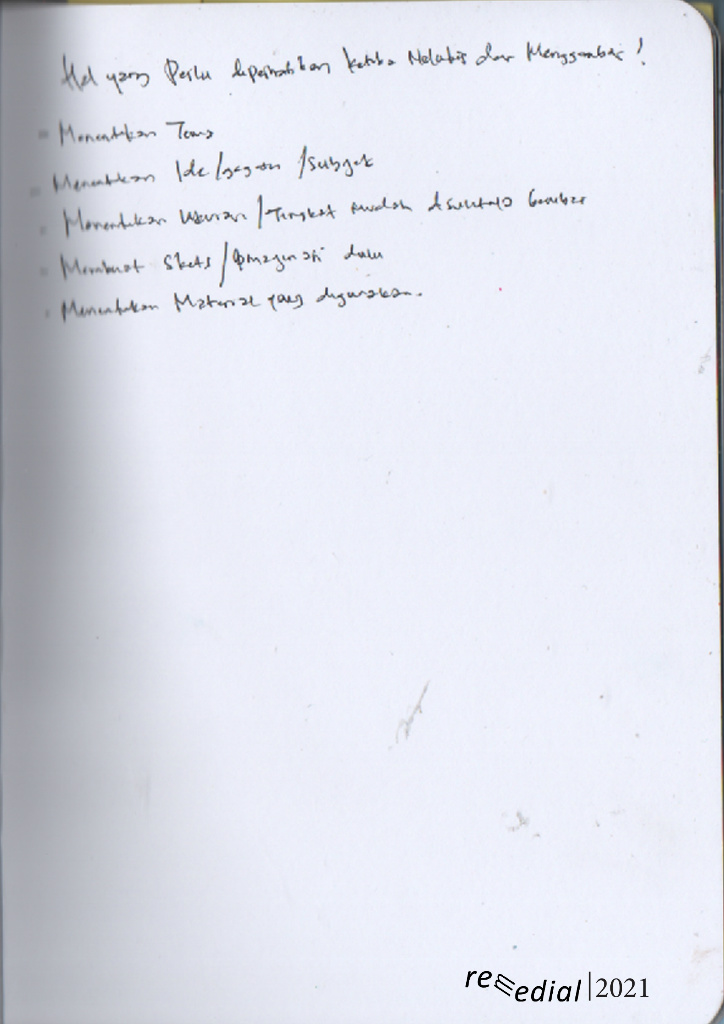 Hal yang Perlu diperhatikan ketika Melukis dan Menggambar !
Menentukan Tema
Menentukan Ide/gagasan/Subjek
Menentukan Ukuran/Tingkat mudah disulitnya Gambar
Membuat Skets/imaginasi dulu
Menentukan Material yang digunakan.
remedial|2021